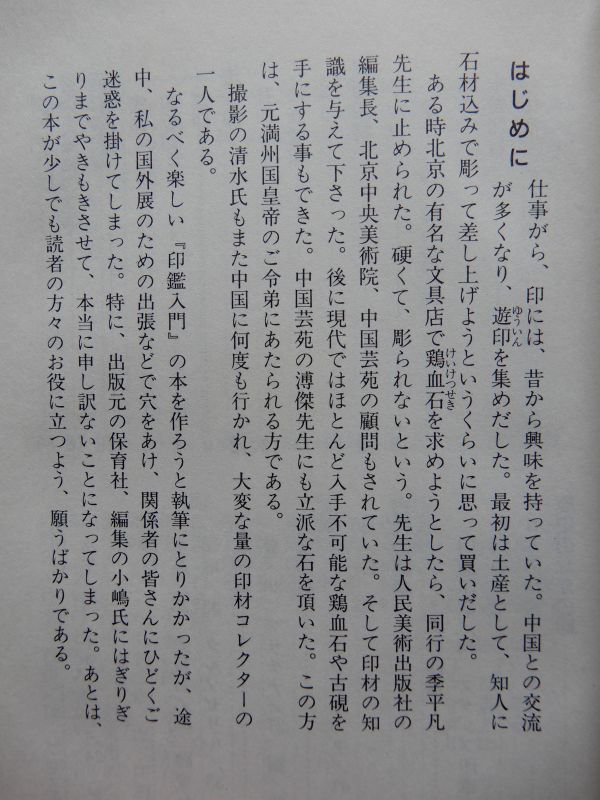 はじめに
仕事がら、印には、昔から興味を持っていた。中国との交流
が多くなり、遊印を集めだした。最初は土産として、知人に
ゆういん
石材込みで彫って差し上げようというくらいに思って買いだした。
ある時北京の有名な文具店で鶏血石を求めようとしたら、同行の季平凡
けいけつせき
先生に止められた。硬くて、彫られないという。先生は人民美術出版社の
編集長、北京中央美術院、中国芸苑の顧問もされていた。そして印材の知
識を与えて下さった。後に現代ではほとんど入手不可能な鶏血石や古硯を
手にする事もできた。中国芸苑の溥傑先生にも立派な石を頂いた。この方
は、元満州国皇帝のご令弟にあたられる方である。
撮影の清水氏もまた中国に何度も行かれ、大変な量の印材コレクターの
一人である。
なるべく楽しい『印鑑入門』の本を作ろうと執筆にとりかかったが、途
中、私の国外展のための出張などで穴をあけ、関係者の皆さんにひどくご
迷惑を掛けてしまった。特に、出版元の保育社、編集の小嶋氏にはぎりぎ
りまでやきもきさせて、本当に申し訳ないことになってしまった。あとは、
この本が少しでも読者の方々のお役に立つよう、願うばかりである。